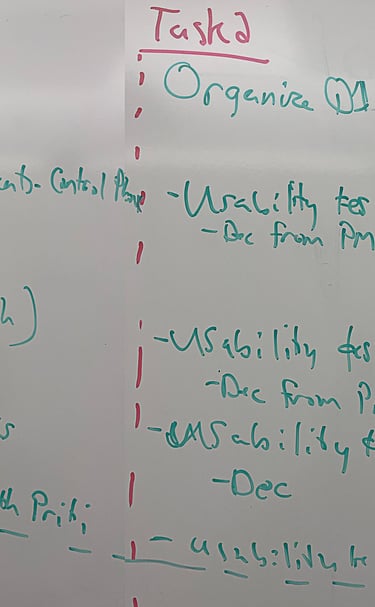 Task2
Organize Q1
- Control Plane
- Usability tes
- Dec from PM
h)
- Usability tes
- Dec from P
s
- Usability t
- Dec
th Priti
- usability te